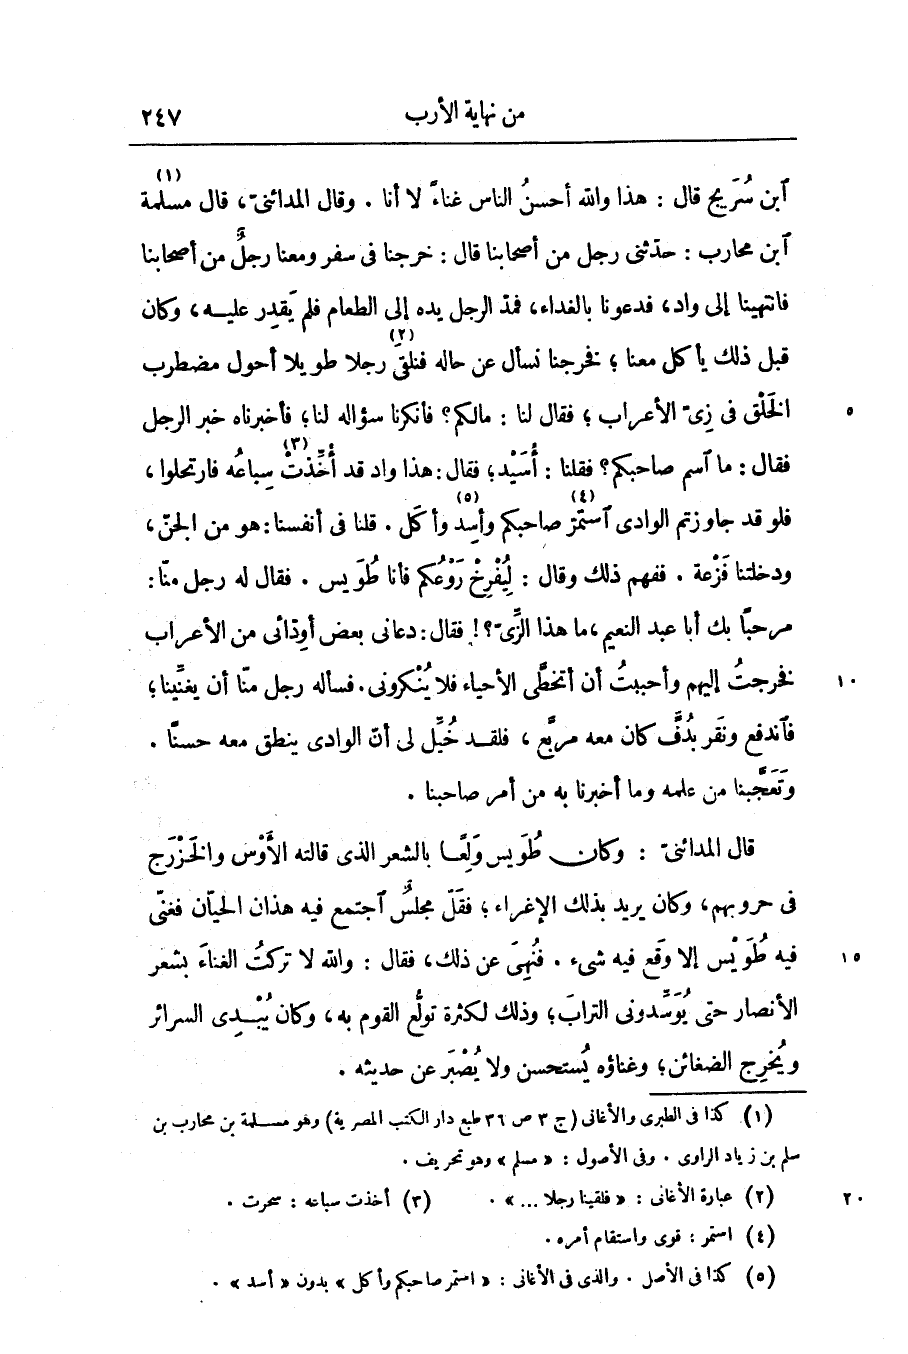 من نهاية الأرب ٢٤٧
(١)
آبن سُرَيج قال : هذا والله أحسنُ الناس غناءً لا أنا . وقال المدائنىّ، قال مسلمة
آبن محارب : حدّثنى رجل من أصحابنا قال : خرجنا فى سفر ومعنا رجلٌ من أصحابنا
فانتهينا إلى واد، فدعونا بالغداء، فمدّ الرجل يده إلى الطعام فلم يَقدِر عليه، وكان
(٢)
قبل ذلك يأكل معنا؛ فخرجنا نسأل عن حاله فنلقَى رجلا طويلا أحول مضطرب
الخَلْق فى زِىّ الأعراب؛ فقال لنا : مالكم؟ فأنكرنا سؤاله لنا؛ فأخبرناه خبر الرجل ٥
(٣)
فقال : ما آسم صاحبكم؟ فقلنا : أُسَيْد؛ فقال : هذا واد قد أُخِّذتْ سِباعُه فارتحلوا،
(٤) (٥)
فلو قد جاوزتم الوادى آستمرّ صاحبكم وأسِد وأكل . قلنا فى أنفسنا : هو من الجنّ،
ودخلتنا فَزْعة . ففهم ذلك وقال : لِيُفْرِخْ رَوْعُكم فأنا طُوَيس . فقال له رجل منّا :
مرحبًا بك أبا عبد النعيم، ما هذا الزِّىّ؟! فقال : دعانى بعض أودّائى من الأعراب
فخرجتُ إليهم وأحببتُ أن أتخطَّى الأحياء فلا يُنْكرونى. فسأله رجل منّا أن يغنِّينا؛ ١٠
فآندفع ونَقَر بدُفٍّ كان معه مربَّع، فلقد خُيِّل لى أنّ الوادى ينطق معه حسنًا .
وتَعَجَّبنا من علمه وما أخبرنا به من أمر صاحبنا .
قال المدائنىّ : وكان طُوَيس وَلِعًا بالشعر الذى قالته الأَوْس والخَزْرَج
فى حروبهم، وكان يريد بذلك الإغراء؛ فقلّ مجلسٌ آجتمع فيه هذان الحيّان فغنّى
فيه طُوَيْس إلا وَقَع فيه شىء . فنُهِىَ عن ذلك، فقال : والله لا تركتُ الغناءَ بشعر ١٥
الأنصار حتى يُوَسِّدونى الترابَ؛ وذلك لكثرة تولُّع القوم به، وكان يُبْدِى السرائر
ويُخرِج الضغائن؛ وغناؤه يُستحسن ولا يُصْبَر عن حديثه .
(١) كذا فى الطبرى والأغانى (ج ٣ ص ٣٦ طبع دار الكتب المصرية) وهو مسلمة بن محارب بن
سلم بن زياد الراوى . وفى الأصول : « مسلم » وهو تحريف .
(٢) عبارة الأغانى : « فلقينا رجلا ... » . (٣) أخذت سباعه : سحرت . ٢٠
(٤) استمر : قوى واستقام أمره .
(٥) كذا فى الأصل . والذى فى الأغانى : « استمر صاحبكم وأكل » بدون « أسد » .